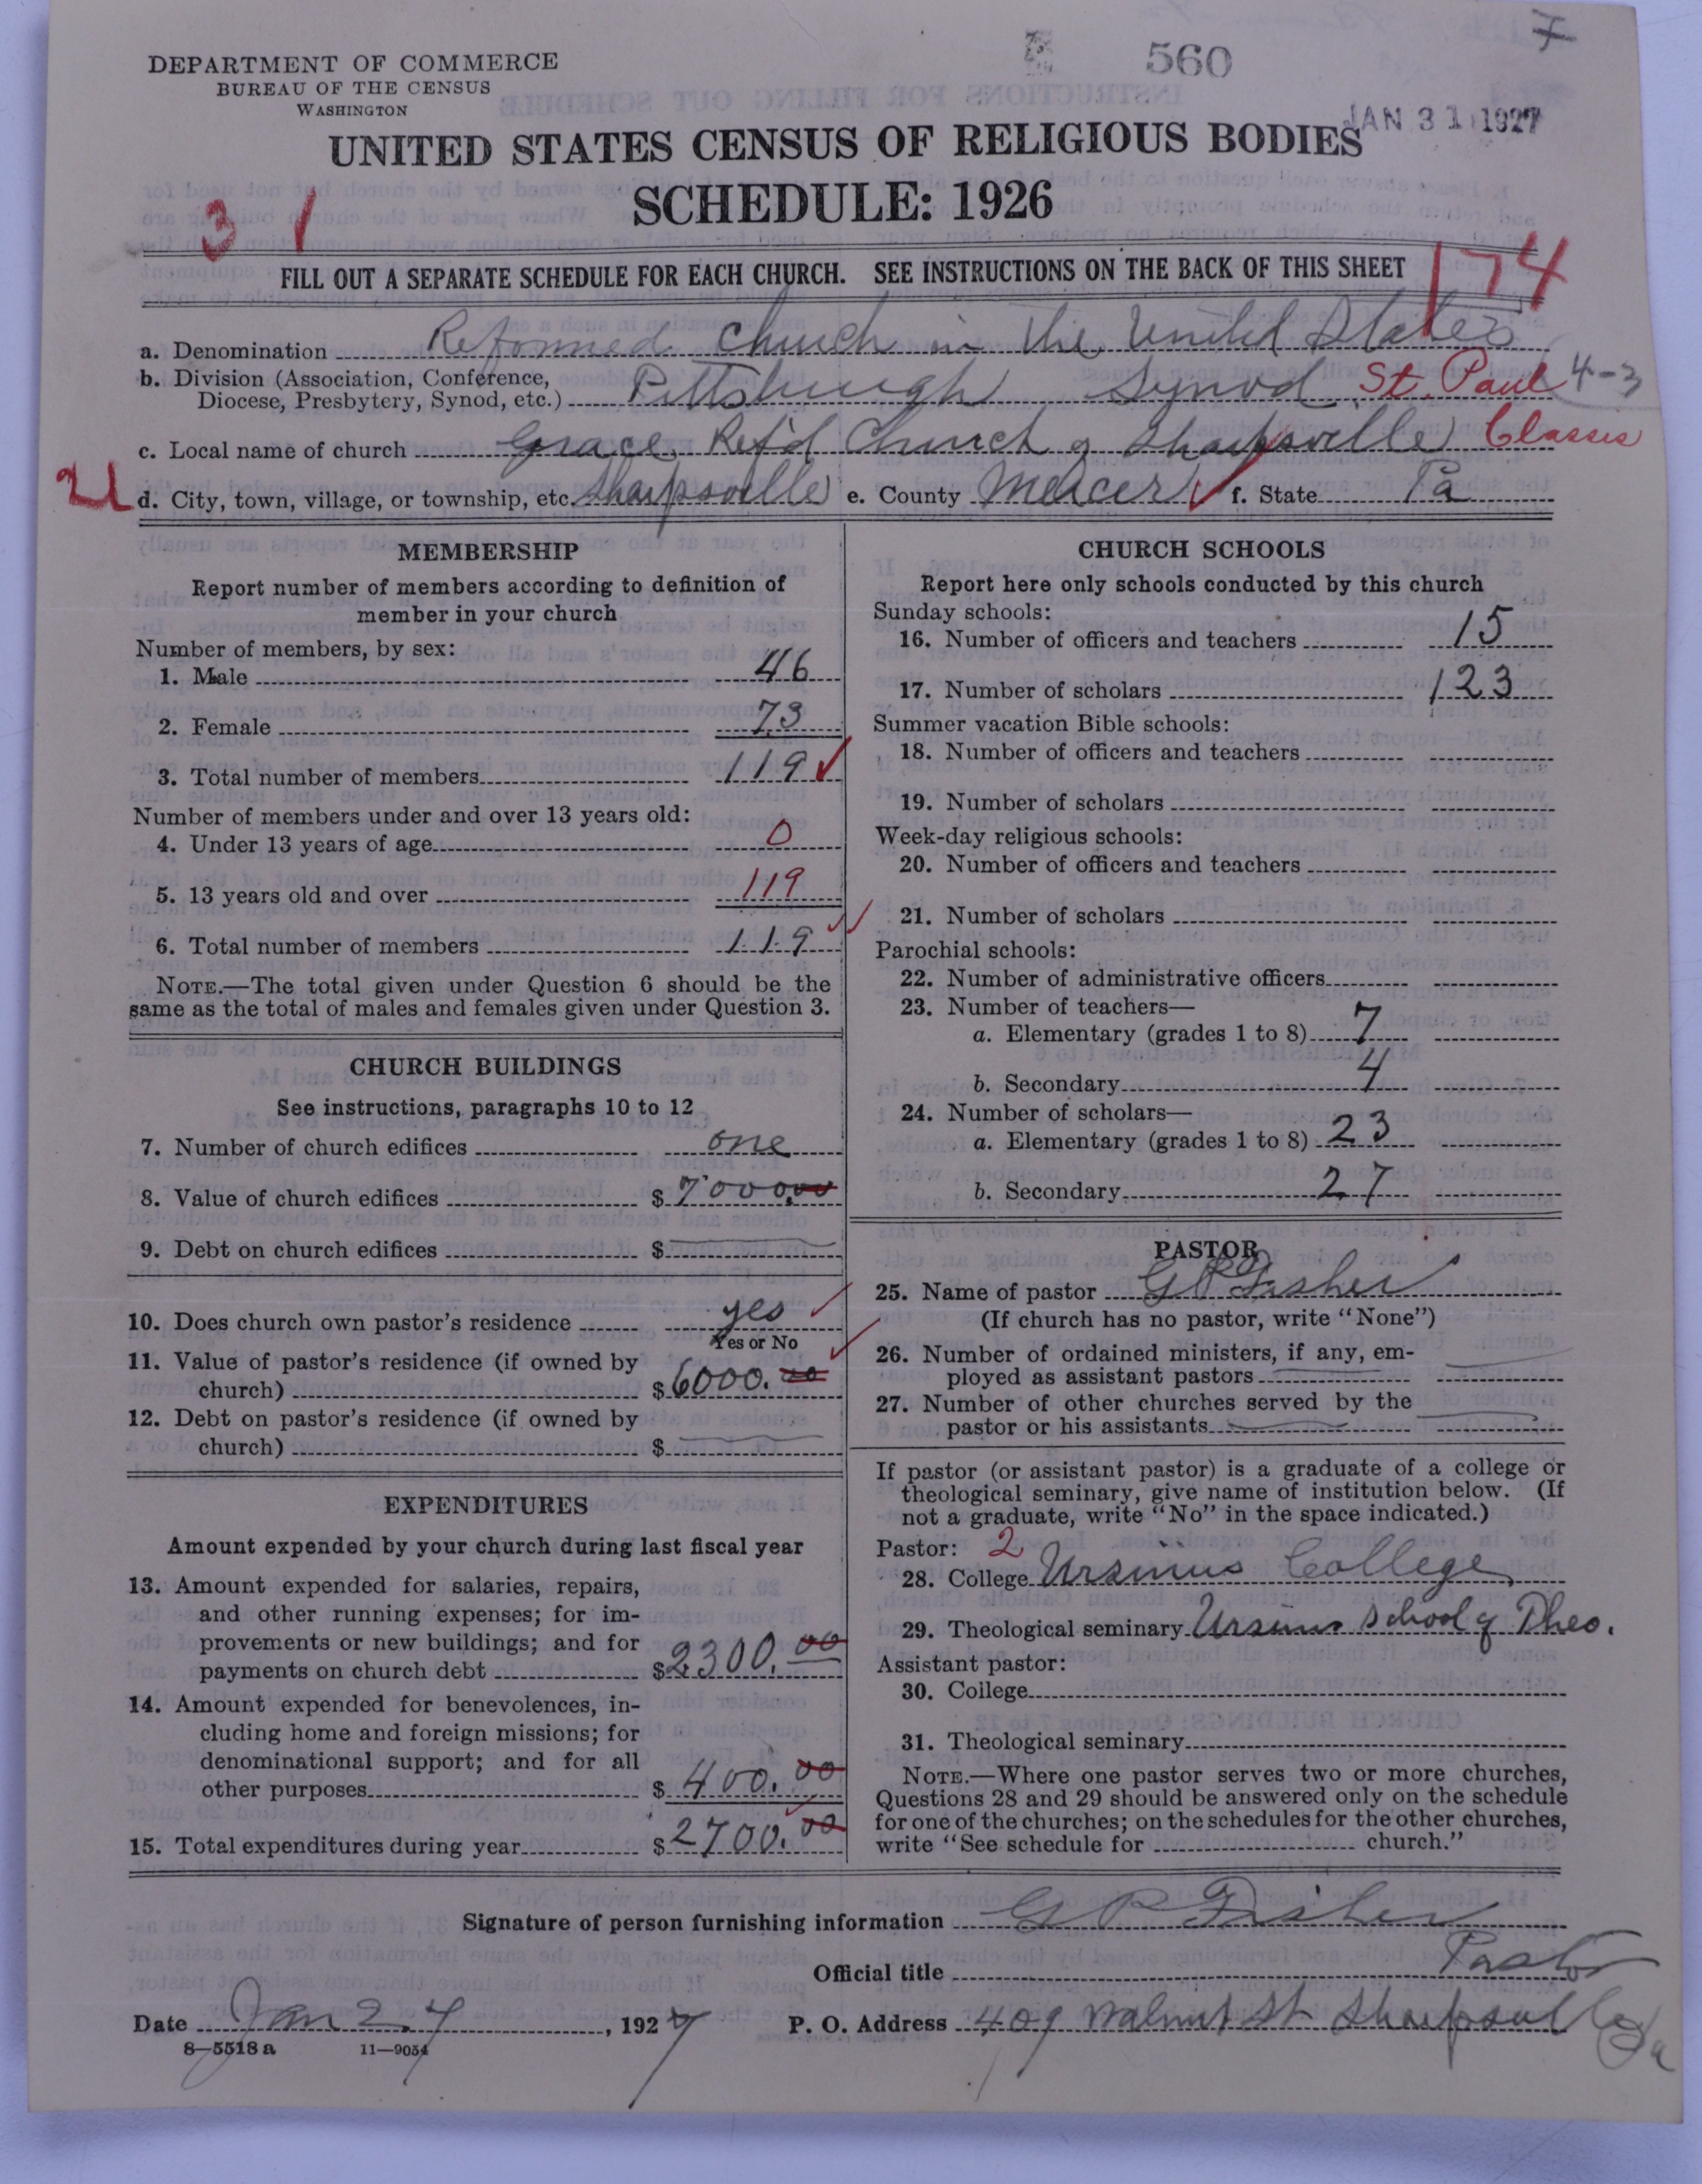 7
560
DEPARTMENT OF COMMERCE
BUREAU OF THE CENSUS
WASHINGTON
JAN 31 1927
UNITED STATES CENSUS OF RELIGIOUS BODIES
SCHEDULE: 1926
3 1
FILL OUT A SEPARATE SCHEDULE FOR EACH CHURCH. SEE INSTRUCTIONS ON THE BACK OF THIS SHEET
174
a. Denomination Reformed Church in the United States
b. Division (Association, Conference,
Diocese, Presbytery, Synod, etc.) Pittsburgh Synod St. Paul 4-3
Classis
c. Local name of church Grace Ref'd Church of Sharpsville
d. City, town, village, or township, etc. Sharpsville e. County Mercer f. State Pa
MEMBERSHIP
Report number of members according to definition of
member in your church
Number of members, by sex:
1. Male 46
2. Female 73
3. Total number of members 119
Number of members under and over 13 years old:
4. Under 13 years of age 0
5. 13 years old and over 119
6. Total number of members 119
NOTE.—The total given under Question 6 should be the
same as the total of males and females given under Question 3.
CHURCH BUILDINGS
See instructions, paragraphs 10 to 12
7. Number of church edifices one
8. Value of church edifices $ 7000.00
9. Debt on church edifices $
10. Does church own pastor's residence yes
Yes or No
11. Value of pastor's residence (if owned by
church) $ 6000.00
12. Debt on pastor's residence (if owned by
church) $
EXPENDITURES
Amount expended by your church during last fiscal year
13. Amount expended for salaries, repairs,
and other running expenses; for im-
provements or new buildings; and for
payments on church debt $ 2300.00
14. Amount expended for benevolences, in-
cluding home and foreign missions; for
denominational support; and for all
other purposes $ 400.00
15. Total expenditures during year $ 2700.00
CHURCH SCHOOLS
Report here only schools conducted by this church
Sunday schools:
16. Number of officers and teachers 15
17. Number of scholars 123
Summer vacation Bible schools:
18. Number of officers and teachers
19. Number of scholars
Week-day religious schools:
20. Number of officers and teachers
21. Number of scholars
Parochial schools:
22. Number of administrative officers
23. Number of teachers—
a. Elementary (grades 1 to 8) 7
b. Secondary 4
24. Number of scholars—
a. Elementary (grades 1 to 8) 23
b. Secondary 27
PASTOR
25. Name of pastor G P Fisher
(If church has no pastor, write "None")
26. Number of ordained ministers, if any, em-
ployed as assistant pastors
27. Number of other churches served by the
pastor or his assistants
If pastor (or assistant pastor) is a graduate of a college or
theological seminary, give name of institution below. (If
not a graduate, write "No" in the space indicated.)
Pastor: 2
28. College Ursinus College
29. Theological seminary Ursinus School of Theo.
Assistant pastor:
30. College
31. Theological seminary
NOTE.—Where one pastor serves two or more churches,
Questions 28 and 29 should be answered only on the schedule
for one of the churches; on the schedules for the other churches,
write "See schedule for church."
Signature of person furnishing information G P Fisher
Official title Pastor
Date Jan 24, 1927 P. O. Address 409 Walnut St Sharpsville Pa
8—5518 a 11—9054